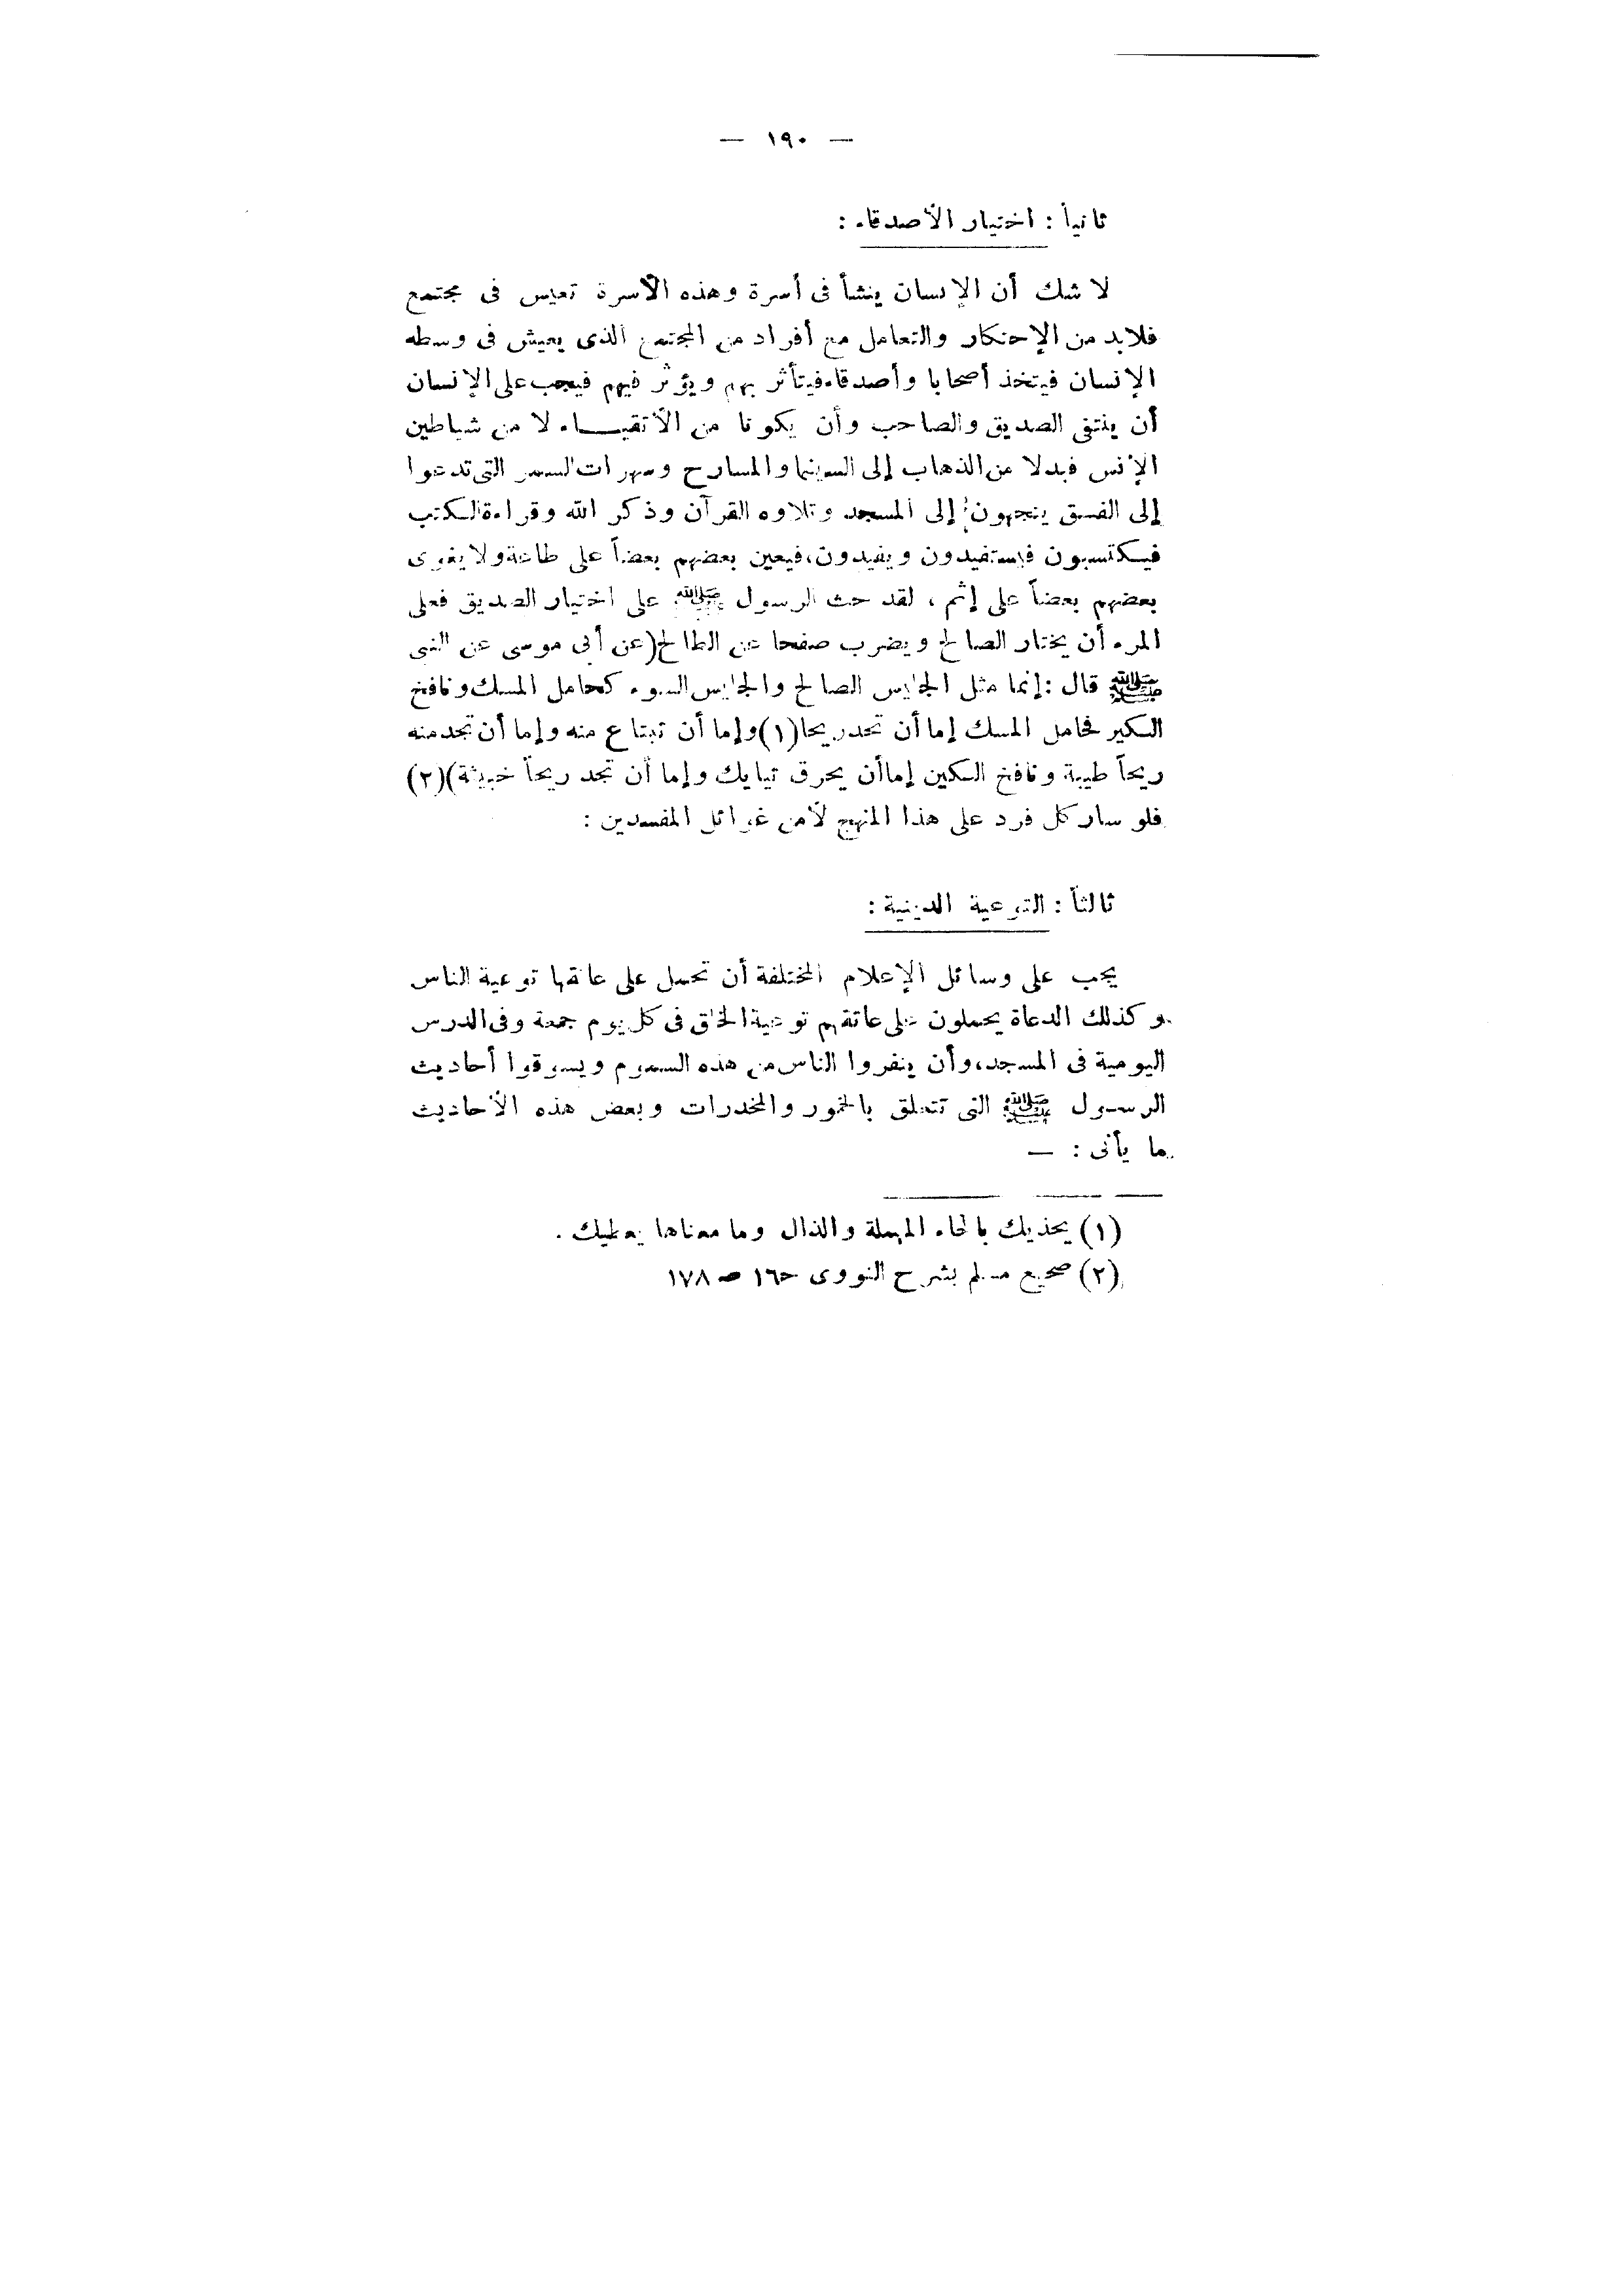 — ١٩٠ —
ثانياً : اختيار الأصدقاء :
لا شك أن الإنسان ينشأ فى أسرة وهذه الأسرة تعيش فى مجتمع
فلابد من الإحتكار والتعامل مع أفراد من المجتمع الذى يعيش فى وسطه
الإنسان فيتخذ أصحابا وأصدقاء فيتأثر بهم ويؤثر فيهم فيجب على الإنسان
أن ينتقى الصديق والصاحب وأن يكونا من الأتقياء لا من شياطين
الإنس فبدلا من الذهاب إلى السينما والمسارح وسهرات السمر التى تدعوا
إلى الفسق يتجهون إلى المسجد وتلاوه القرآن وذكر الله وقراءة الكتب
فيكتسبون فيستفيدون ويفيدون، فيعين بعضهم بعضاً على طاعة ولا يغوى
بعضهم بعضاً على إثم ، لقد حث الرسول ﷺ على اختيار الصديق فعلى
المرء أن يختار الصالح ويضرب صفحا عن الطالح (عن أبى موسى عن النبى
ﷺ قال : إنما مثل الجليس الصالح والجليس السوء كحامل المسك ونافخ
الكير فحامل المسك إما أن تحدريحا (١) وإما أن تبتاع منه وإما أن تجد منه
ريحاً طيبة ونافخ الكين إما أن يحرق ثيابك وإما أن تجد ريحاً خبيثة) (٢)
فلو سار كل فرد على هذا المنهج لأمن غوائل المفسدين :
ثالثاً : التوعية الدينية :
يجب على وسائل الإعلام المختلفة أن تحمل على عاتقها توعية الناس
وكذلك الدعاة يحملون على عاتقهم توعية الخلق فى كل يوم جمعة وفى الدرس
اليومية فى المسجد، وأن ينفروا الناس من هذه السموم ويسوقوا أحاديث
الرسول ﷺ التى تتعلق بالخمور والمخدرات وبعض هذه الأحاديث
ما يأتى : —
(١) يحذيك بالحاء المهملة والذال وما معناها يعطيك .
(٢) صحيح مسلم بشرح النووى حـ١٦ صـ ١٧٨